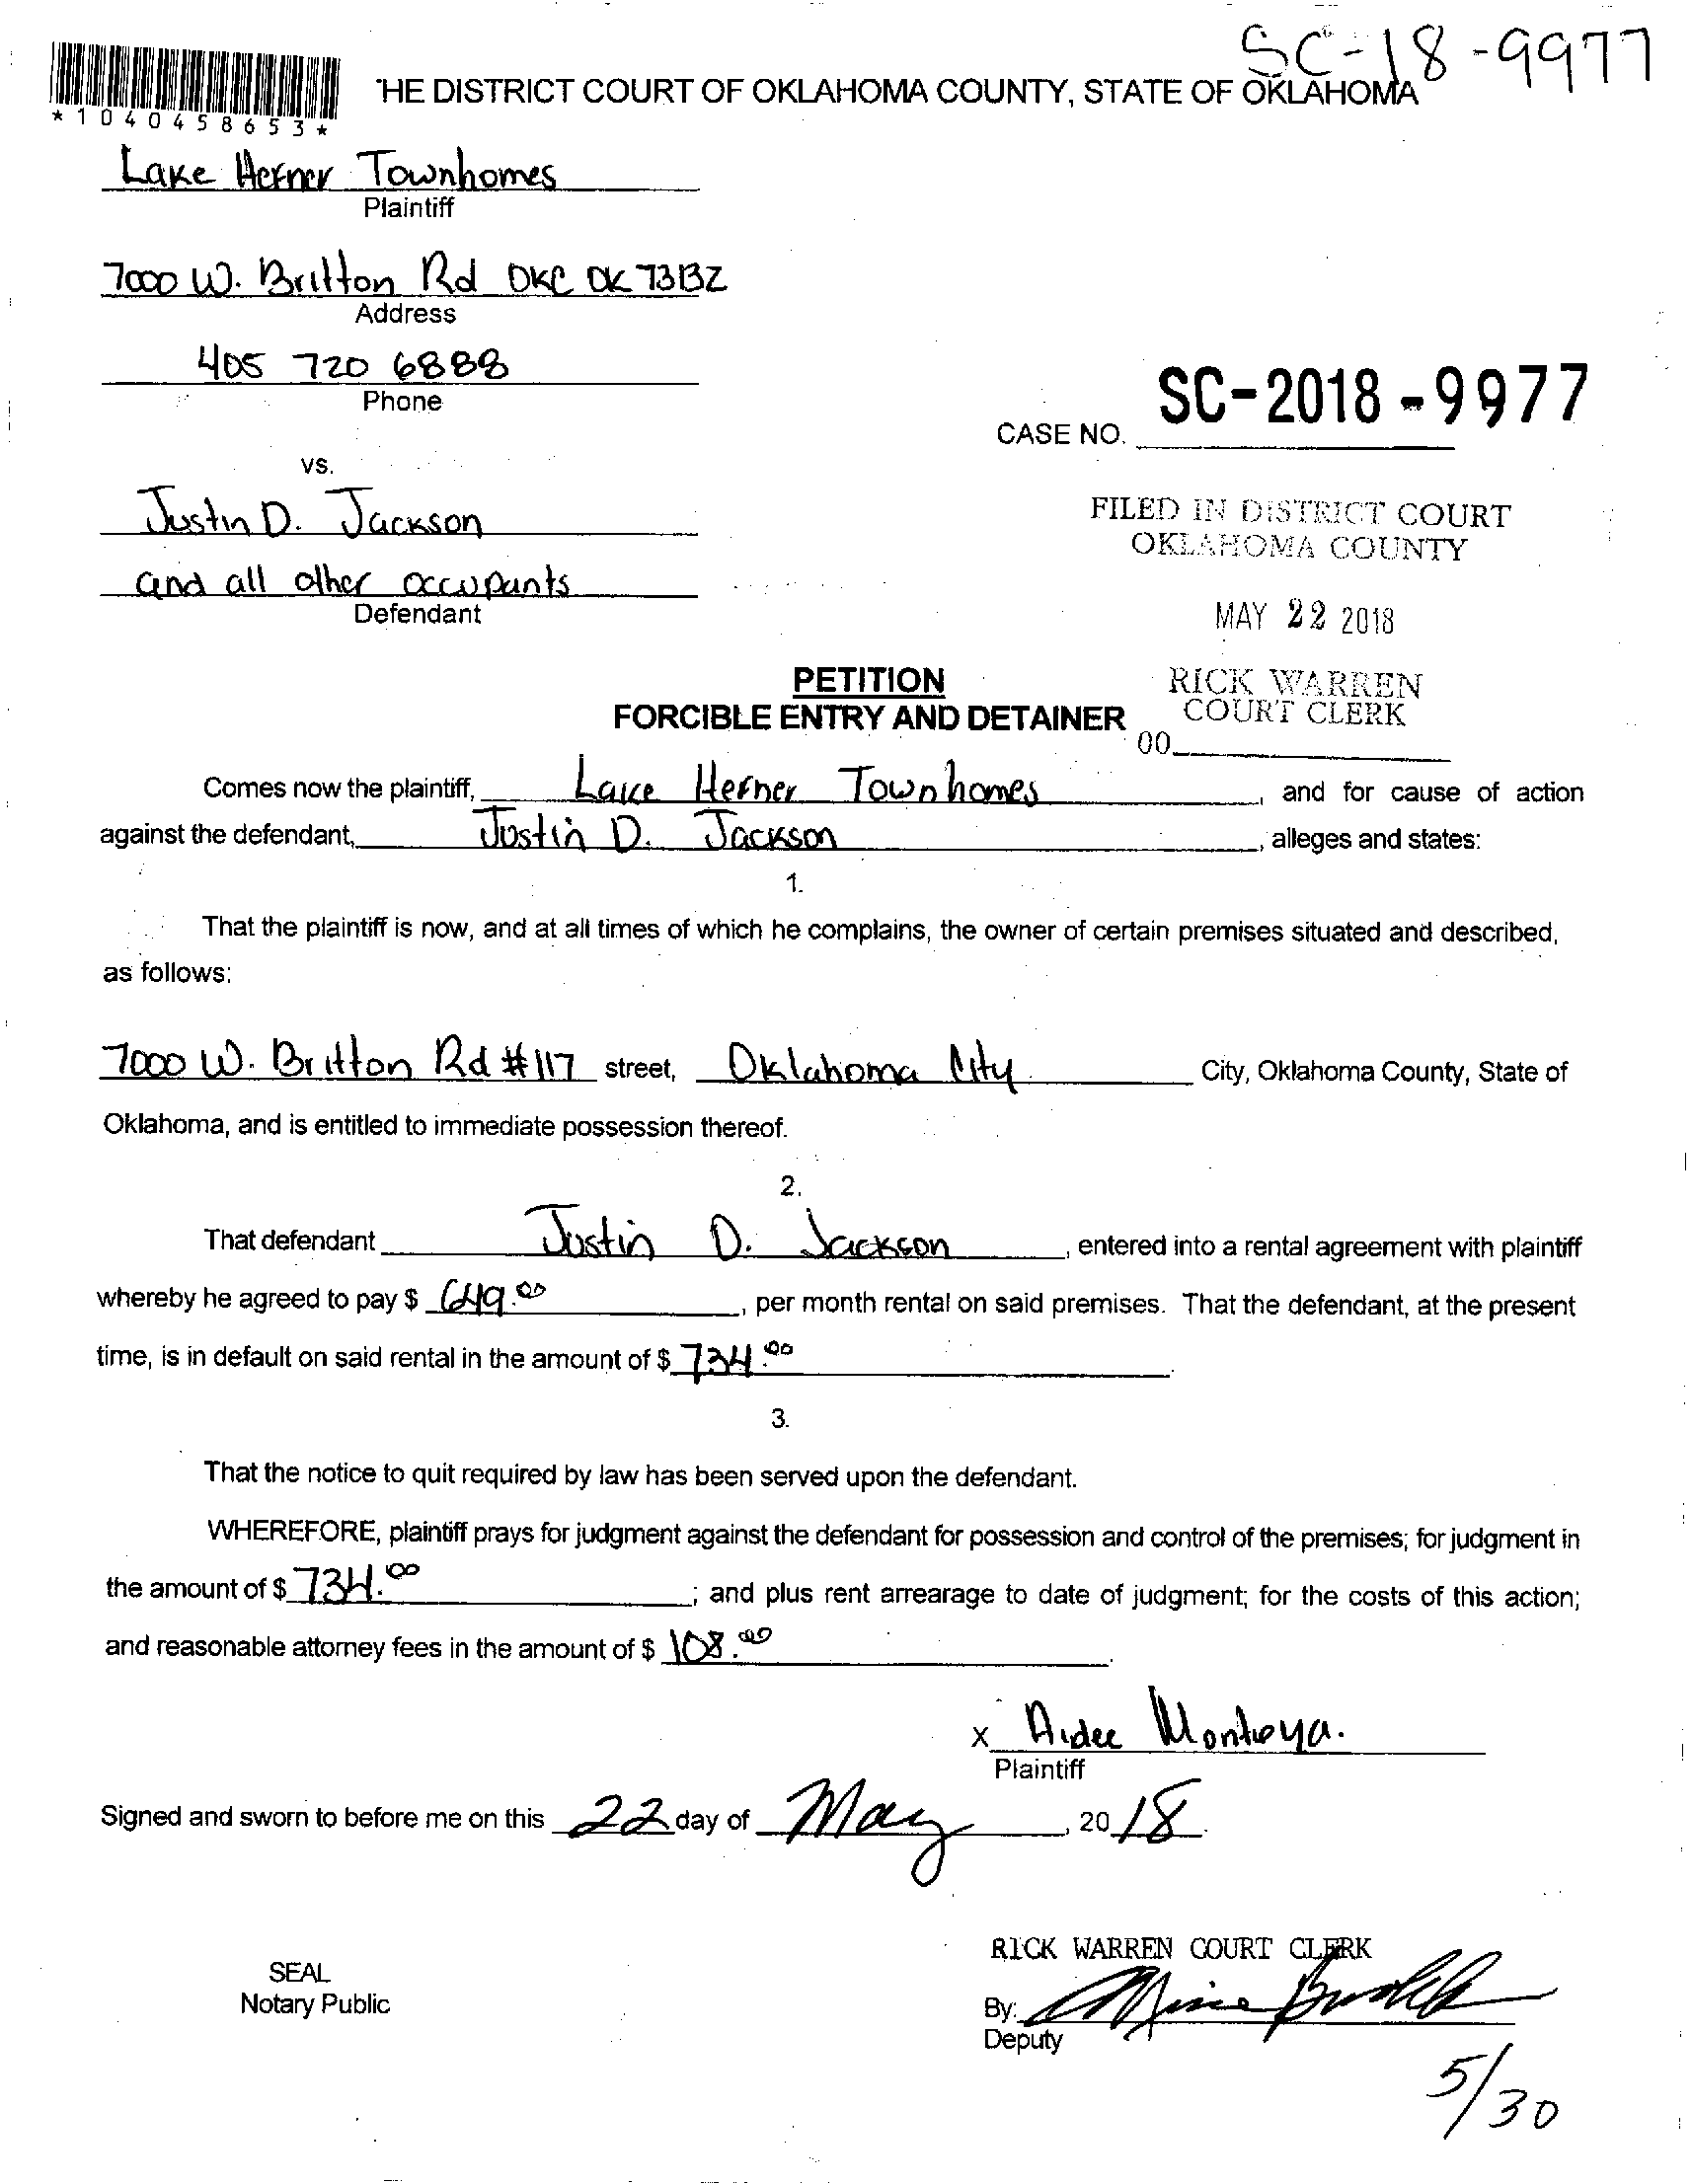 SC-18-9977
*1040458653*
THE DISTRICT COURT OF OKLAHOMA COUNTY, STATE OF OKLAHOMA
Lake Hefner Townhomes
Plaintiff
7000 W. Britton Rd OKC OK 73132
Address
405 720 6888
Phone
SC-2018-9977
CASE NO.
vs.
Justin D. Jackson
FILED IN DISTRICT COURT
OKLAHOMA COUNTY
and all other occupants
Defendant
MAY 22 2018
PETITION
RICK WARREN
FORCIBLE ENTRY AND DETAINER
COURT CLERK
00
Comes now the plaintiff, Lake Hefner Townhomes, and for cause of action
against the defendant, Justin D. Jackson, alleges and states:
1.
That the plaintiff is now, and at all times of which he complains, the owner of certain premises situated and described,
as follows:
7000 W. Britton Rd #117 street, Oklahoma City City, Oklahoma County, State of
Oklahoma, and is entitled to immediate possession thereof.
2.
That defendant Justin D. Jackson, entered into a rental agreement with plaintiff
whereby he agreed to pay $ 649.00, per month rental on said premises. That the defendant, at the present
time, is in default on said rental in the amount of $ 734.00.
3.
That the notice to quit required by law has been served upon the defendant.
WHEREFORE, plaintiff prays for judgment against the defendant for possession and control of the premises; for judgment in
the amount of $ 734.00; and plus rent arrearage to date of judgment; for the costs of this action;
and reasonable attorney fees in the amount of $ 108.00.
x Aidee Montoya.
Plaintiff
Signed and sworn to before me on this 22 day of May, 20 18.
RICK WARREN COURT CLERK
SEAL
Notary Public
By:
Deputy
5/30